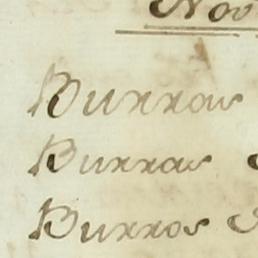 Nov
Burrows
Burrows
Burros